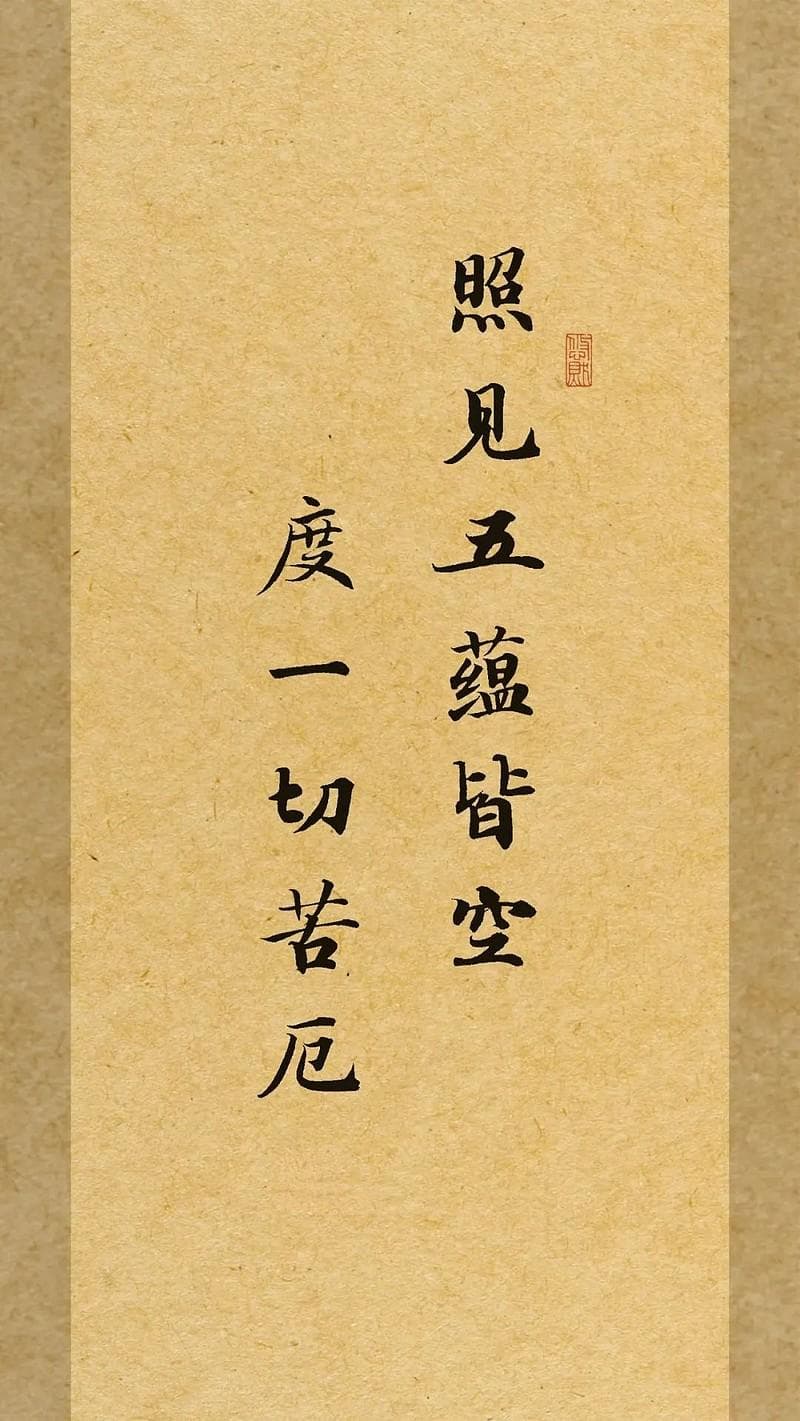 照见五蕴皆空
度一切苦厄